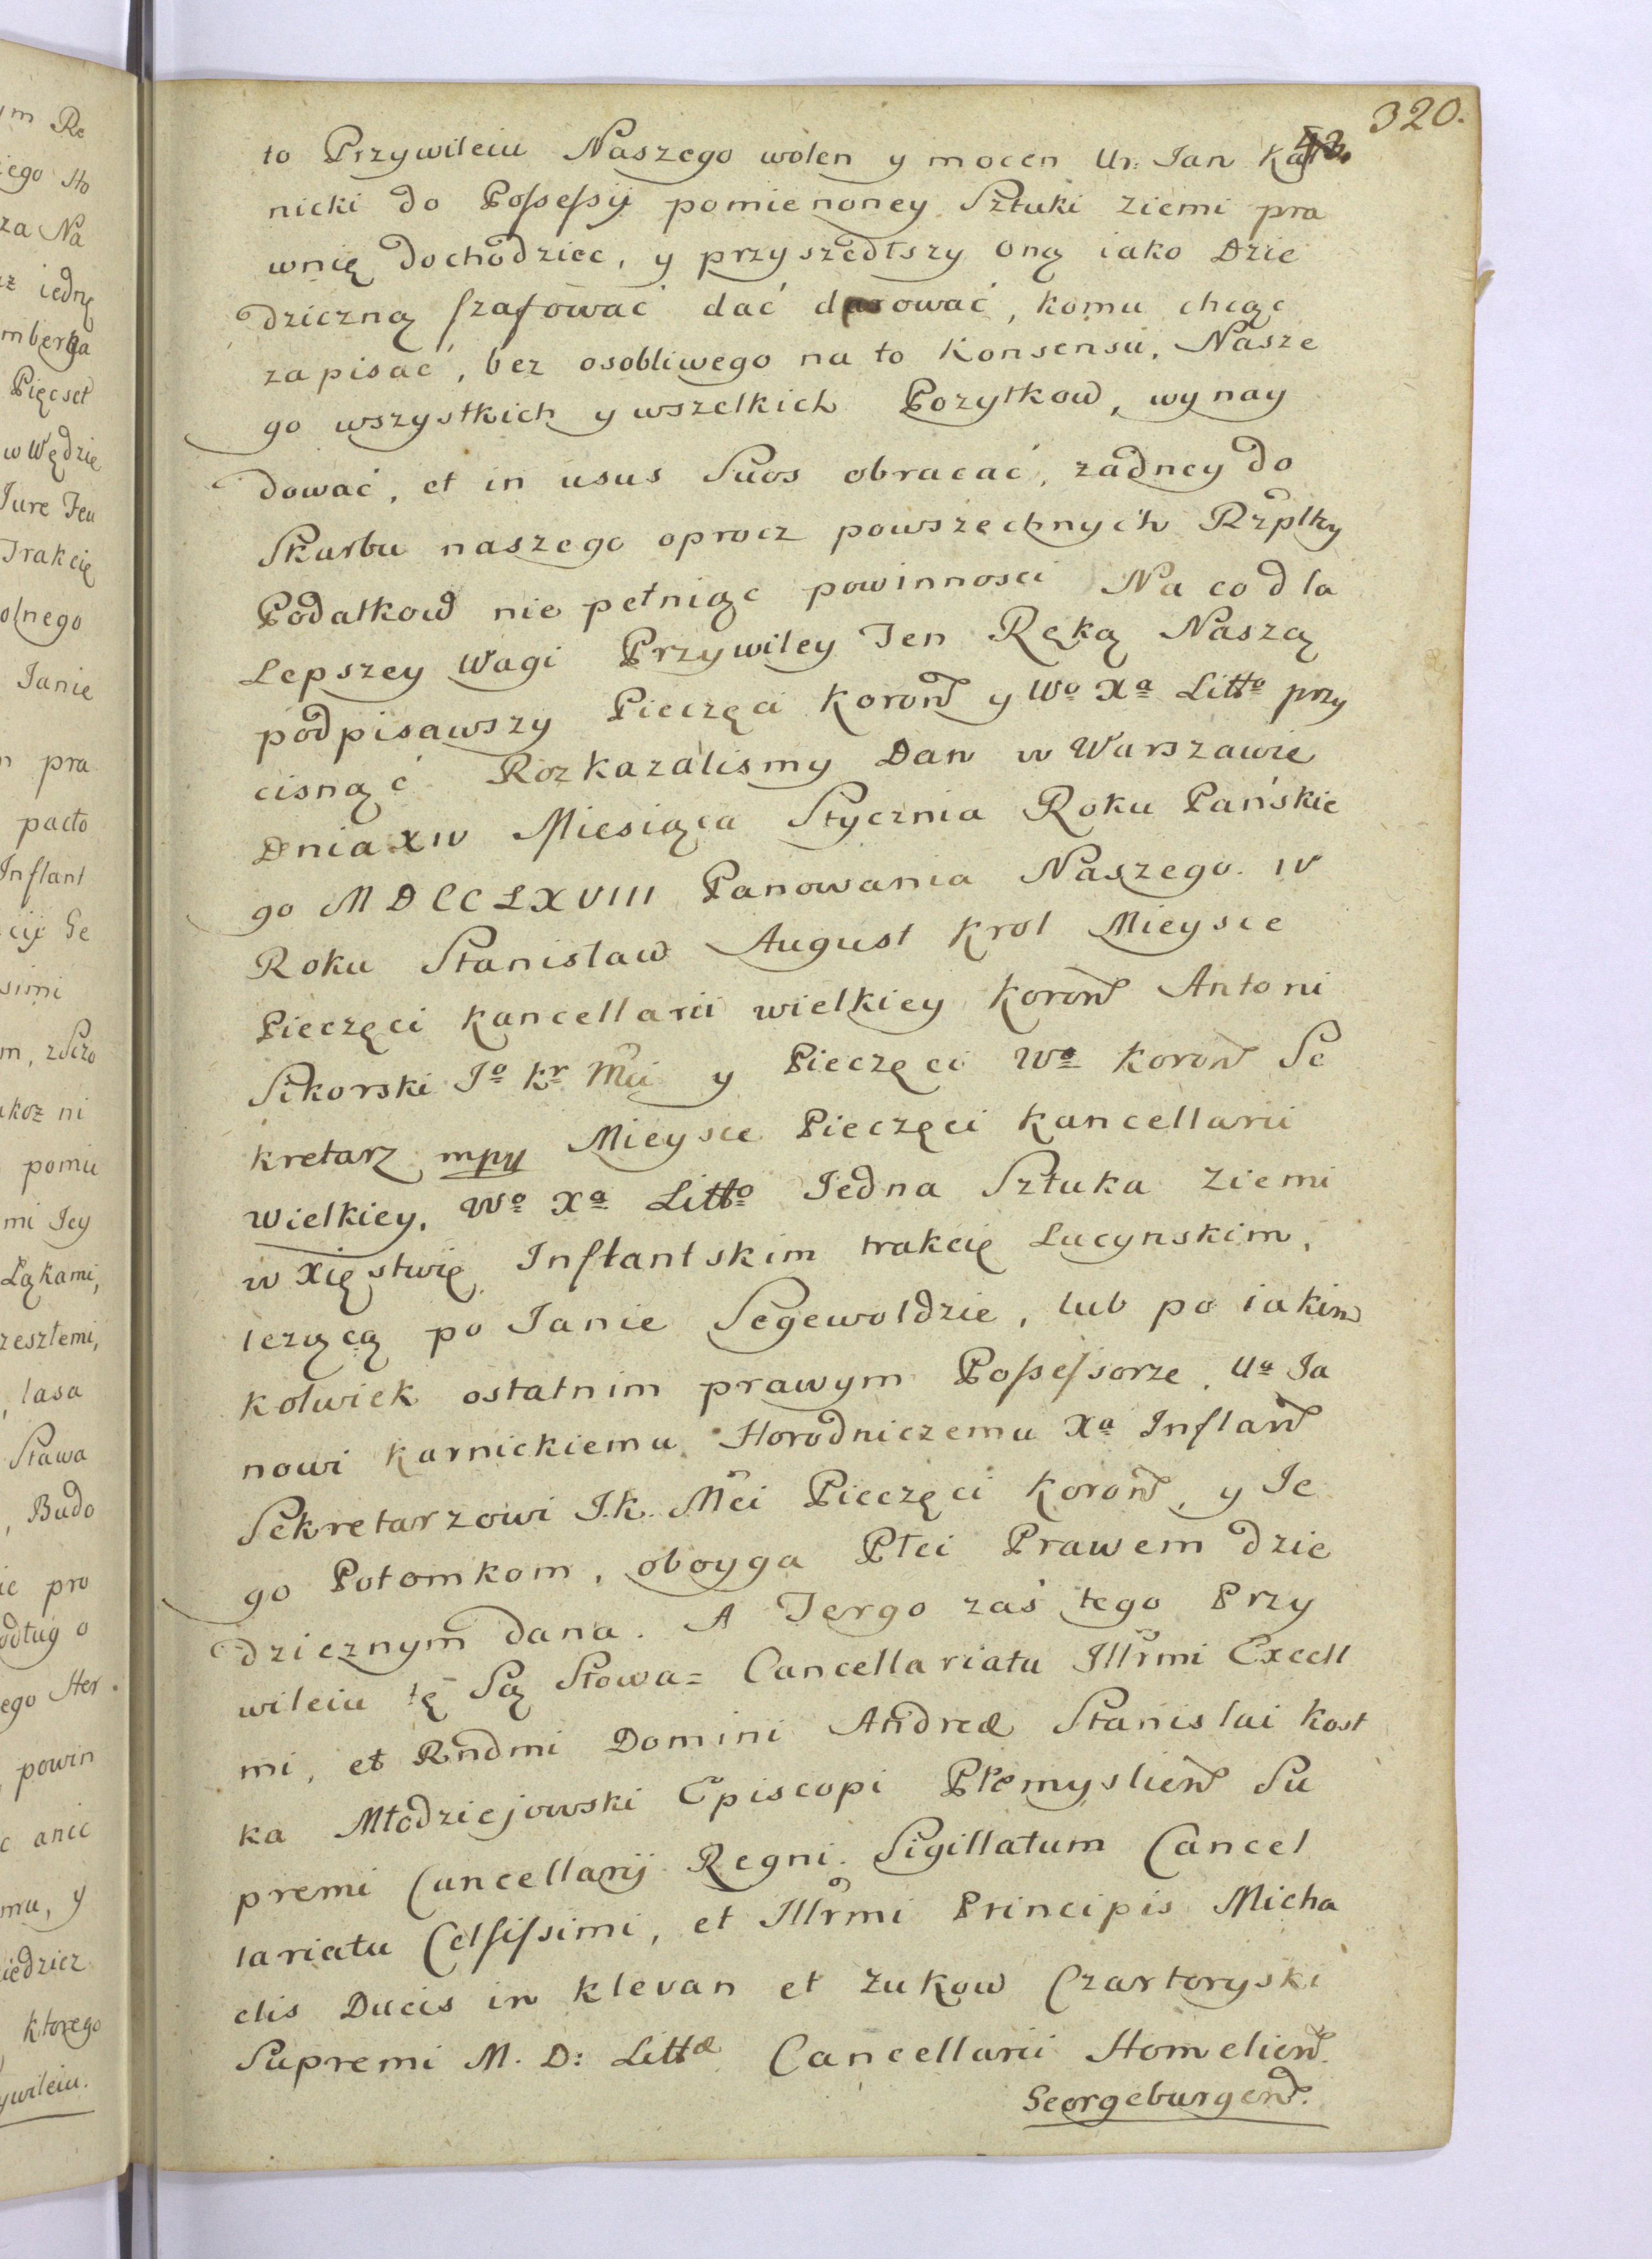 320.
to Przywileiu Naszego wolen y mocen Ur: Jan Kar
nicki do Possessyi pomienoney Sztuki ziemi pra
wnię dochodzicc, y przyszedłszy oną iako Dzie
dziczną szafować dać darować, komu chcąc
zapisać, bez osobliwego na to Konsensu, Nasze
go wszystkich y wszelkich Pozytkow, wynay
dować, et in usus Suos obracać, zadney do
Skarbu naszego oprocz powszechnych Rzpltey
Podatkow nie pełniąc powinnosci Na co dla
Lepszey Wagi Przywiley Ten Ręką Naszą
podpisawszy Pieczęci Koron y Wo Xa Litto przy
cisnąć Rozkazalismy Dan w Warszawie
Dnia XIV Miesiąca Stycznia Roku Pańskie
go MDCCLXVIII Panowania Naszego. IV
Roku Stanisław August Krol Mieysce
Pieczęci Kancellarii wielkiey Koron Antoni
Sikorski Jo Kr Mci y Pieczęci Wo Koron Se
kretarz mpp Mieysce Pieczęci Kancellarii
Wielkiey, Wo Xa Litto Jedna Sztuka ziemi
w Xięstwię Inflantskim trakcię Lucynskim,
lezącą po Janie Segewoldzie, lub po iakim
kolwiek ostatnim prawym Possessorze, Ua Ja
nowi Karnickiemu Horodniczemu Xa Inflan
Sekretarzowi J.K. Mci Pieczęci Koron, y Je
go Potomkom, oboyga Płci Prawem dzie
dzicznym dana. A Tergo zaś tego Przy
wileiu tę Są Słowa= Cancellariatu Illrmi Excell
mi, et Rndmi Domini Andreæ Stanislai Kost
ka Młodziejowski Episcopi Přemyslien Su
premi Cancellarij Regni. Sigillatum Cancel
lariatu Celsissimi, et Illrmi Principis Micha
elis Ducis in Klevan et Zukow Czartoryski
Supremi M. D: Littæ Cancellarii Homelien.
Georgeburgen.